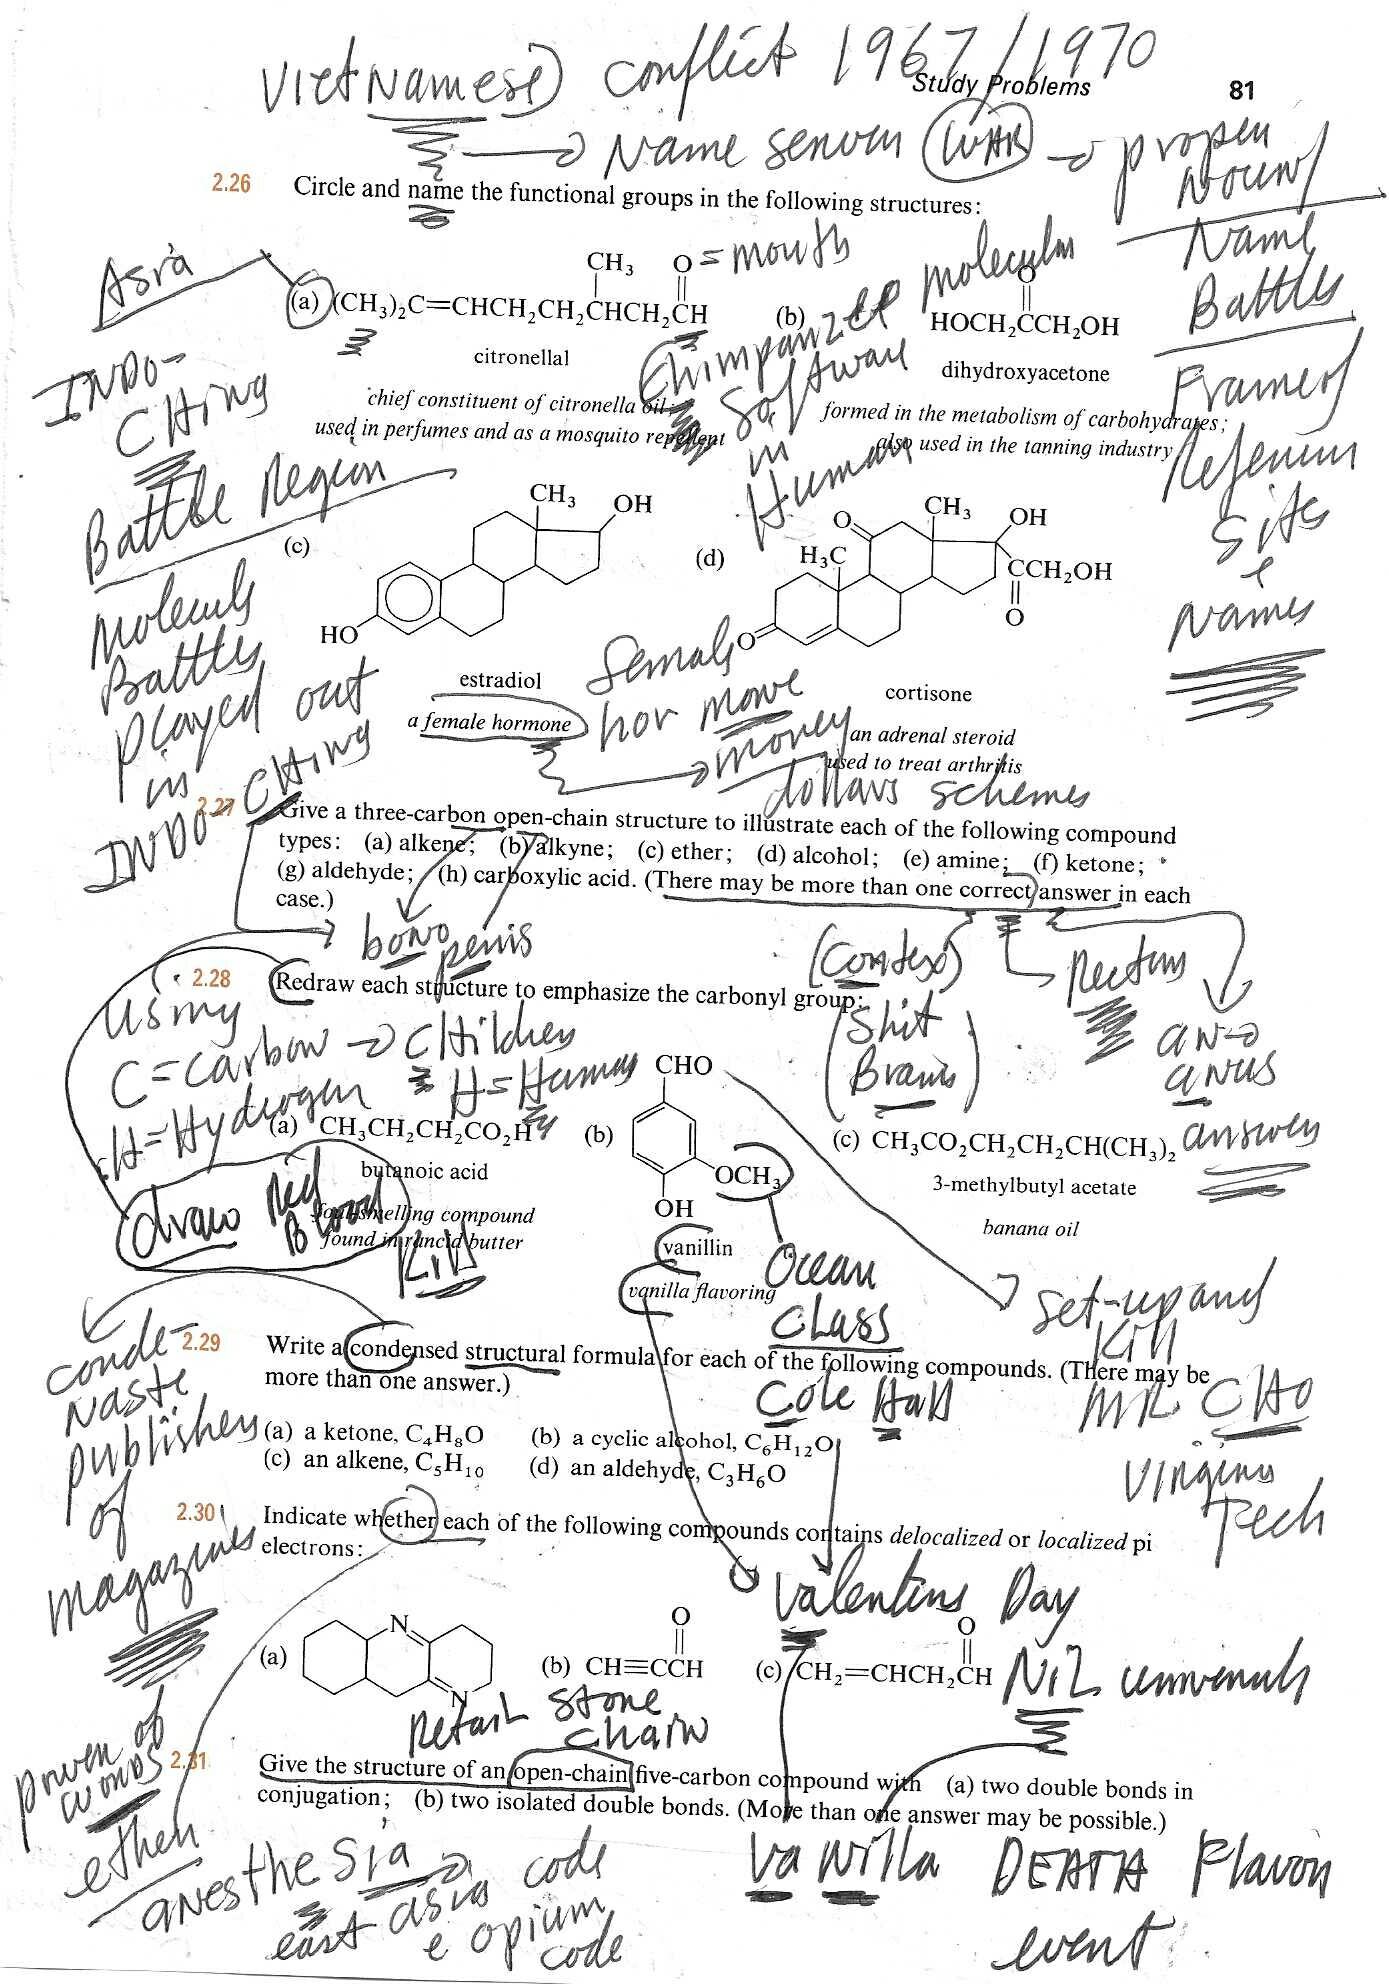 Vietnamese) conflict 1967/1970
Study Problems 81
Name server (WAR) → proper
Noun/
2.26 Circle and name the functional groups in the following structures:
Name
Battles
Frame of
Asia
= mouth
molecular
CH3 O O
(a) (CH3)2C=CHCH2CH2CHCH2CH (b) HOCH2CCH2OH
citronellal dihydroxyacetone
chief constituent of citronella oil; formed in the metabolism of carbohydrates;
used in perfumes and as a mosquito repellent also used in the tanning industry
Chimpanzee
Software
in
Human
INDO-
CHing
Battle Region
Molecule
Battles
played out
in
INDO-CHing
Sites
e
Names
CH3 OH
(c)
HO
estradiol
a female hormone
CH3 OH
O
(d) H3C CCH2OH
O O
cortisone
an adrenal steroid
used to treat arthritis
female
hor mone
money
dollars schemes
2.27 Give a three-carbon open-chain structure to illustrate each of the following compound
types: (a) alkene; (b) alkyne; (c) ether; (d) alcohol; (e) amine; (f) ketone;
(g) aldehyde; (h) carboxylic acid. (There may be more than one correct answer in each
case.)
bono penis
(Contex)
Rectum
2.28 Redraw each structure to emphasize the carbonyl group:
(Shit
Brains)
an→
anus
answer
using
C=carbon → CHildren
H=Hydrogen H=Human
CHO
(a) CH3CH2CH2CO2H (b) OCH3 (c) CH3CO2CH2CH2CH(CH3)2
OH
butanoic acid 3-methylbutyl acetate
foul-smelling compound banana oil
found in rancid butter
vanillin
vanilla flavoring
draw Red
Blood
Kill
Ocean
CLASS
Set-up and
Kill
MR. CHO
Virginia
Tech
2.29 Write a condensed structural formula for each of the following compounds. (There may be
more than one answer.)
Cole Hall
(a) a ketone, C4H8O (b) a cyclic alcohol, C6H12O
(c) an alkene, C5H10 (d) an aldehyde, C3H6O
conde-
Naste
publisher
of
magazines
2.30 Indicate whether each of the following compounds contains delocalized or localized pi
electrons:
Valentins Day
N O O
(a) (b) CH≡CCH (c) CH2=CHCH2CH
N
NiL
Retail Stone
chain
power of
words
2.31 Give the structure of an open-chain five-carbon compound with (a) two double bonds in
conjugation; (b) two isolated double bonds. (More than one answer may be possible.)
ether
anesthe Sia → code
east asia
e opium
code
va Nilla DEATH Flavor
event